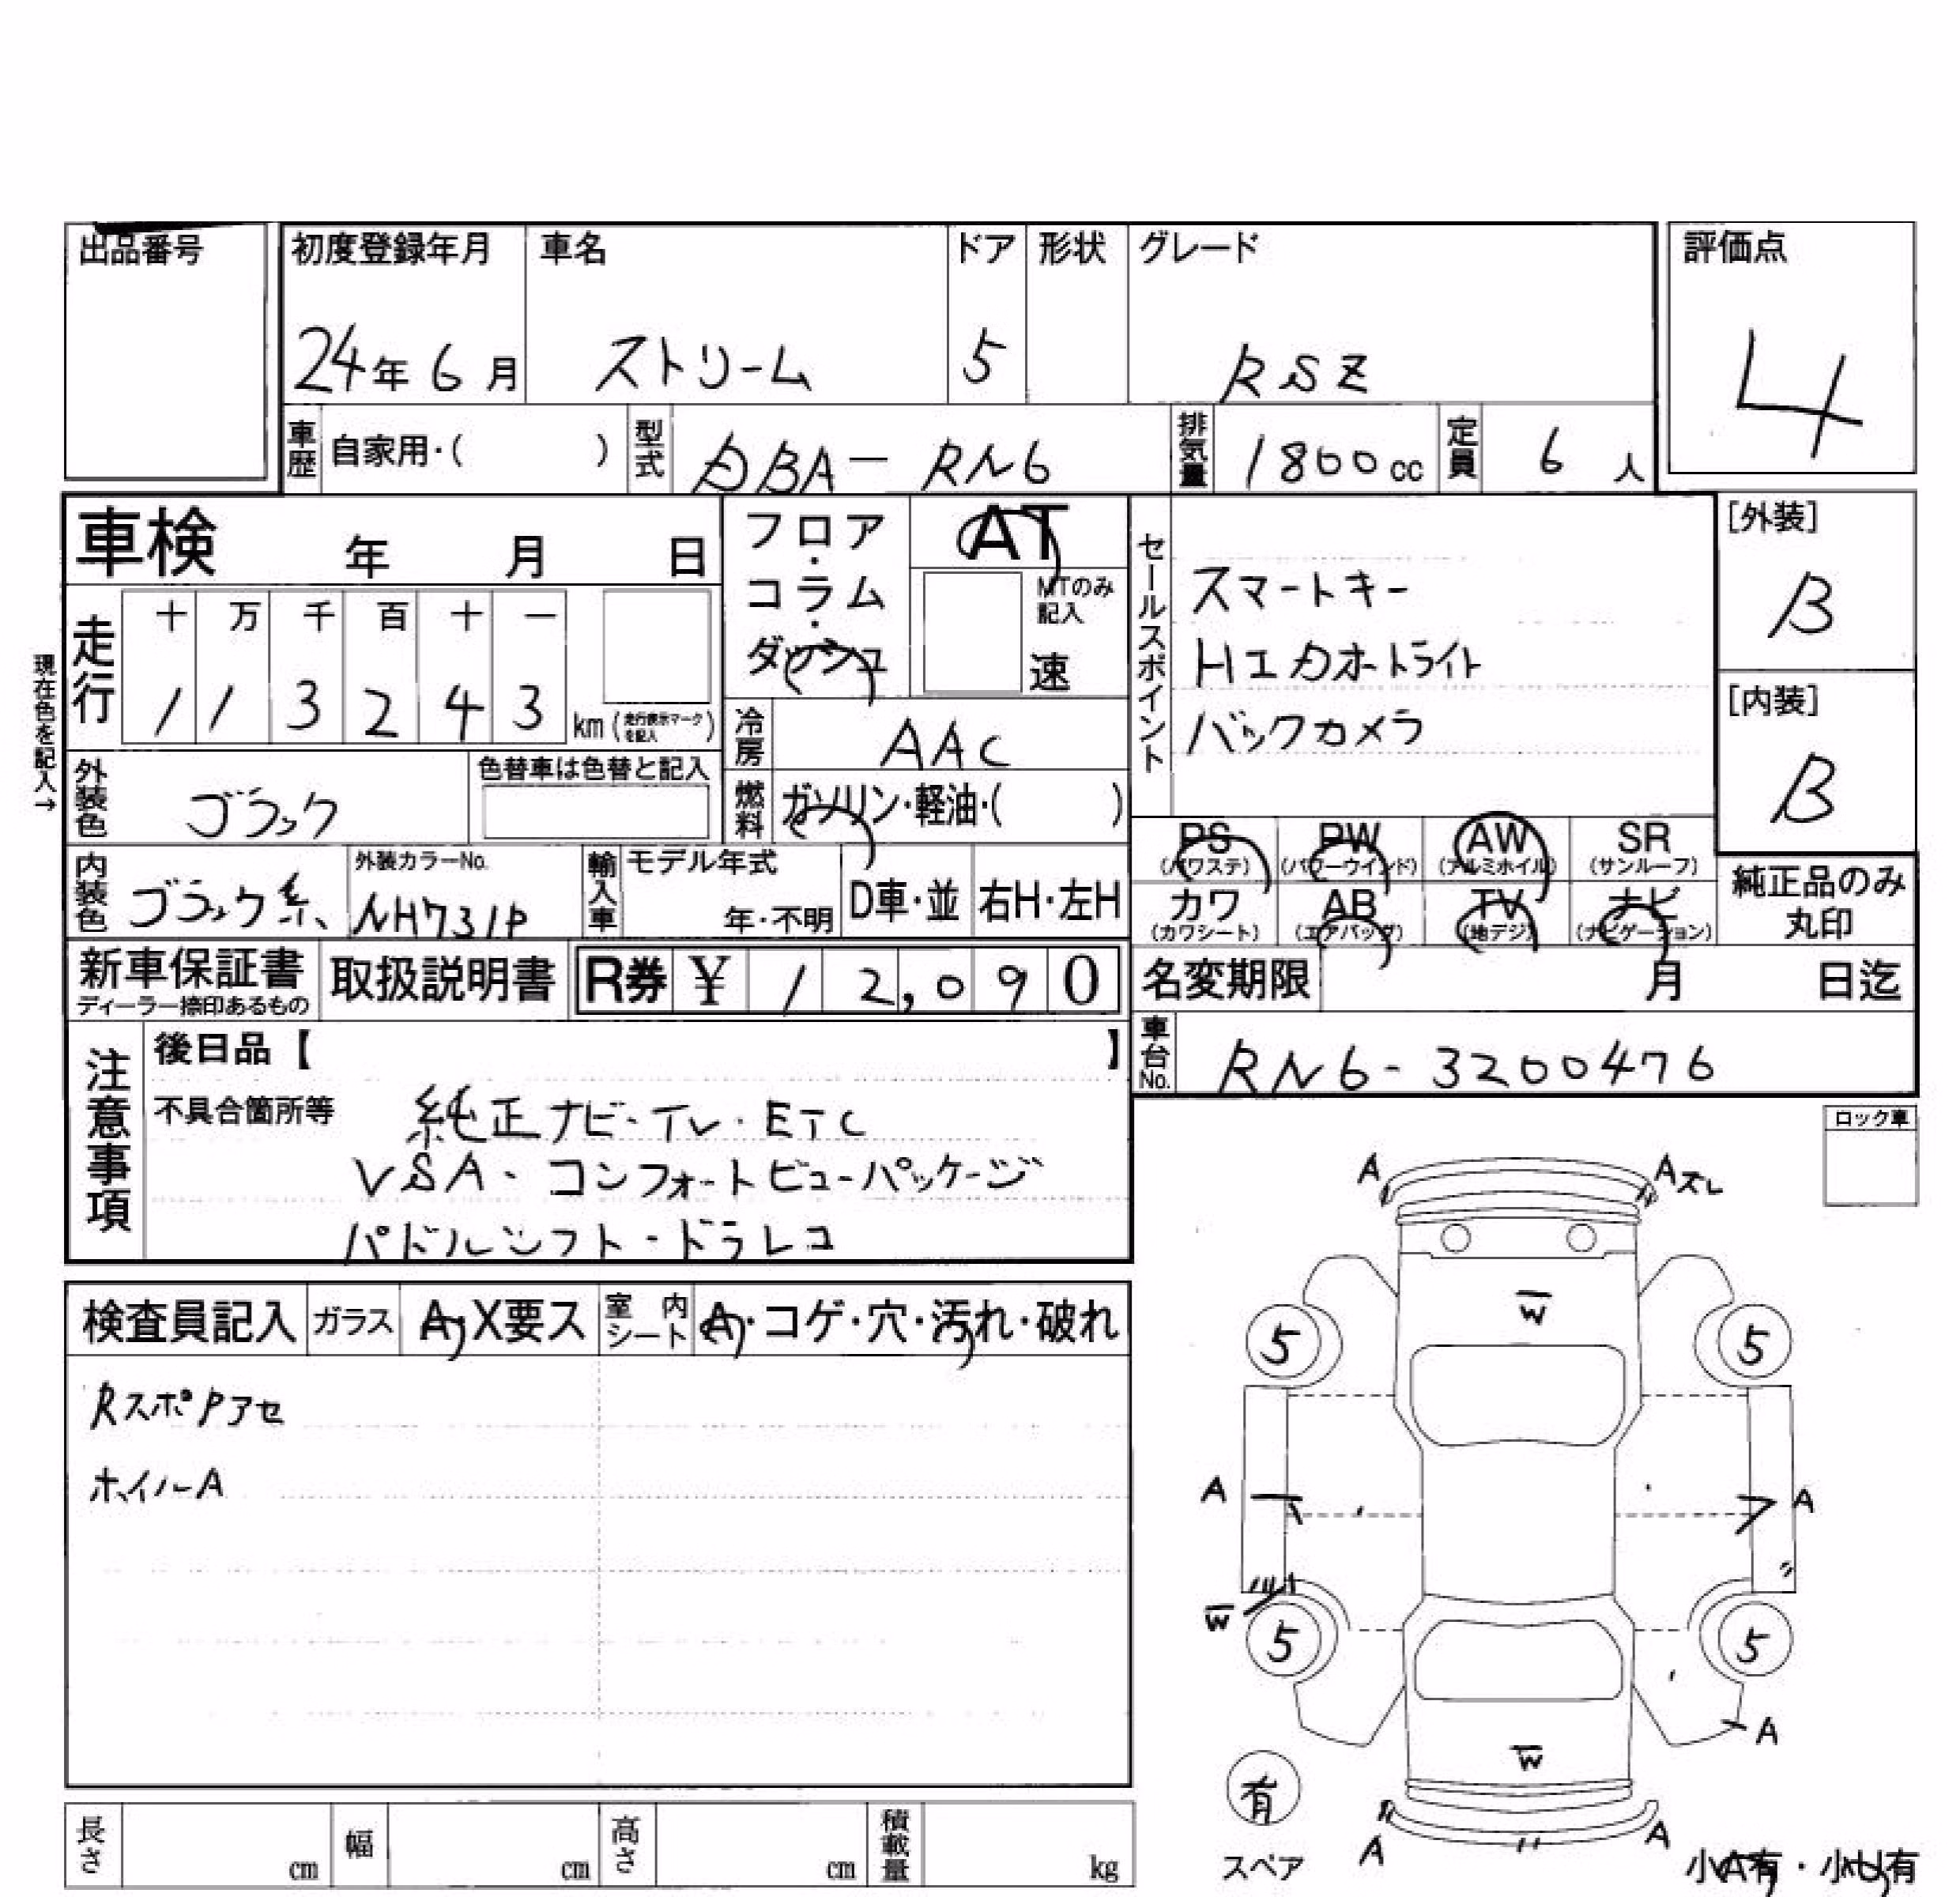 出品番号
初度登録年月 車名 ドア 形状 グレード 評価点
24年 6月 ストリーム 5 RSZ 4
車歴 自家用・( ) 型式 DBA-RN6 排気量 1800cc 定員 6人
車検 年 月 日
フロア・コラム・ダッシュ
AT
MTのみ記入
速
セールスポイント
スマートキー
HIDオートライト
バックカメラ
[外装]
B
[内装]
B
現在色を記入→
走行 十 万 千 百 十 一
1 1 3 2 4 3 km (走行表示マークを記入)
冷房 AAC
外装色 ブラック 色替車は色替と記入
燃料 ガソリン・軽油・( )
PS (パワステ) PW (パワーウインド) AW (アルミホイル) SR (サンルーフ)
カワ (カワシート) AB (エアバッグ) TV (地デジ) ナビ (ナビゲーション)
純正品のみ丸印
内装色 ブラック系 外装カラーNo. NH731P 輸入車 モデル年式 年・不明 D車・並 右H・左H
新車保証書 ディーラー捺印あるもの 取扱説明書 R券 ¥ 12,090
名変期限 月 日迄
車台No. RN6-3200476
注意事項
後日品【 】
不具合箇所等 純正ナビ・TV・ETC
VSA・コンフォートビューパッケージ
パドルシフト・ドラレコ
ロック車
検査員記入 ガラス A・X要ス 室内シート A・コゲ・穴・汚れ・破れ
RスポPアセ
ホイルA
A Aズレ
W
5 5
A A
W
5 5
A
W
有
スペア
A A
小A有・小U有
長さ cm 幅 cm 高さ cm 積載量 kg